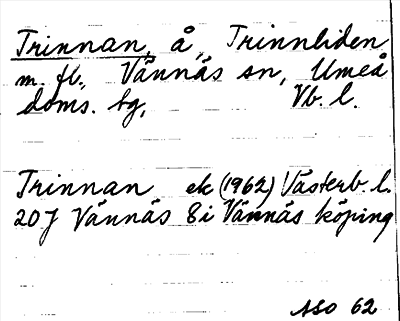 Trinnan, å, Trinnliden
m. fl., Vännäs sn, Umeå
doms. tg, Vb. l.
Trinnan ek (1962) Västerb. l.
20J Vännäs 8i Vännäs köping
ASO 62